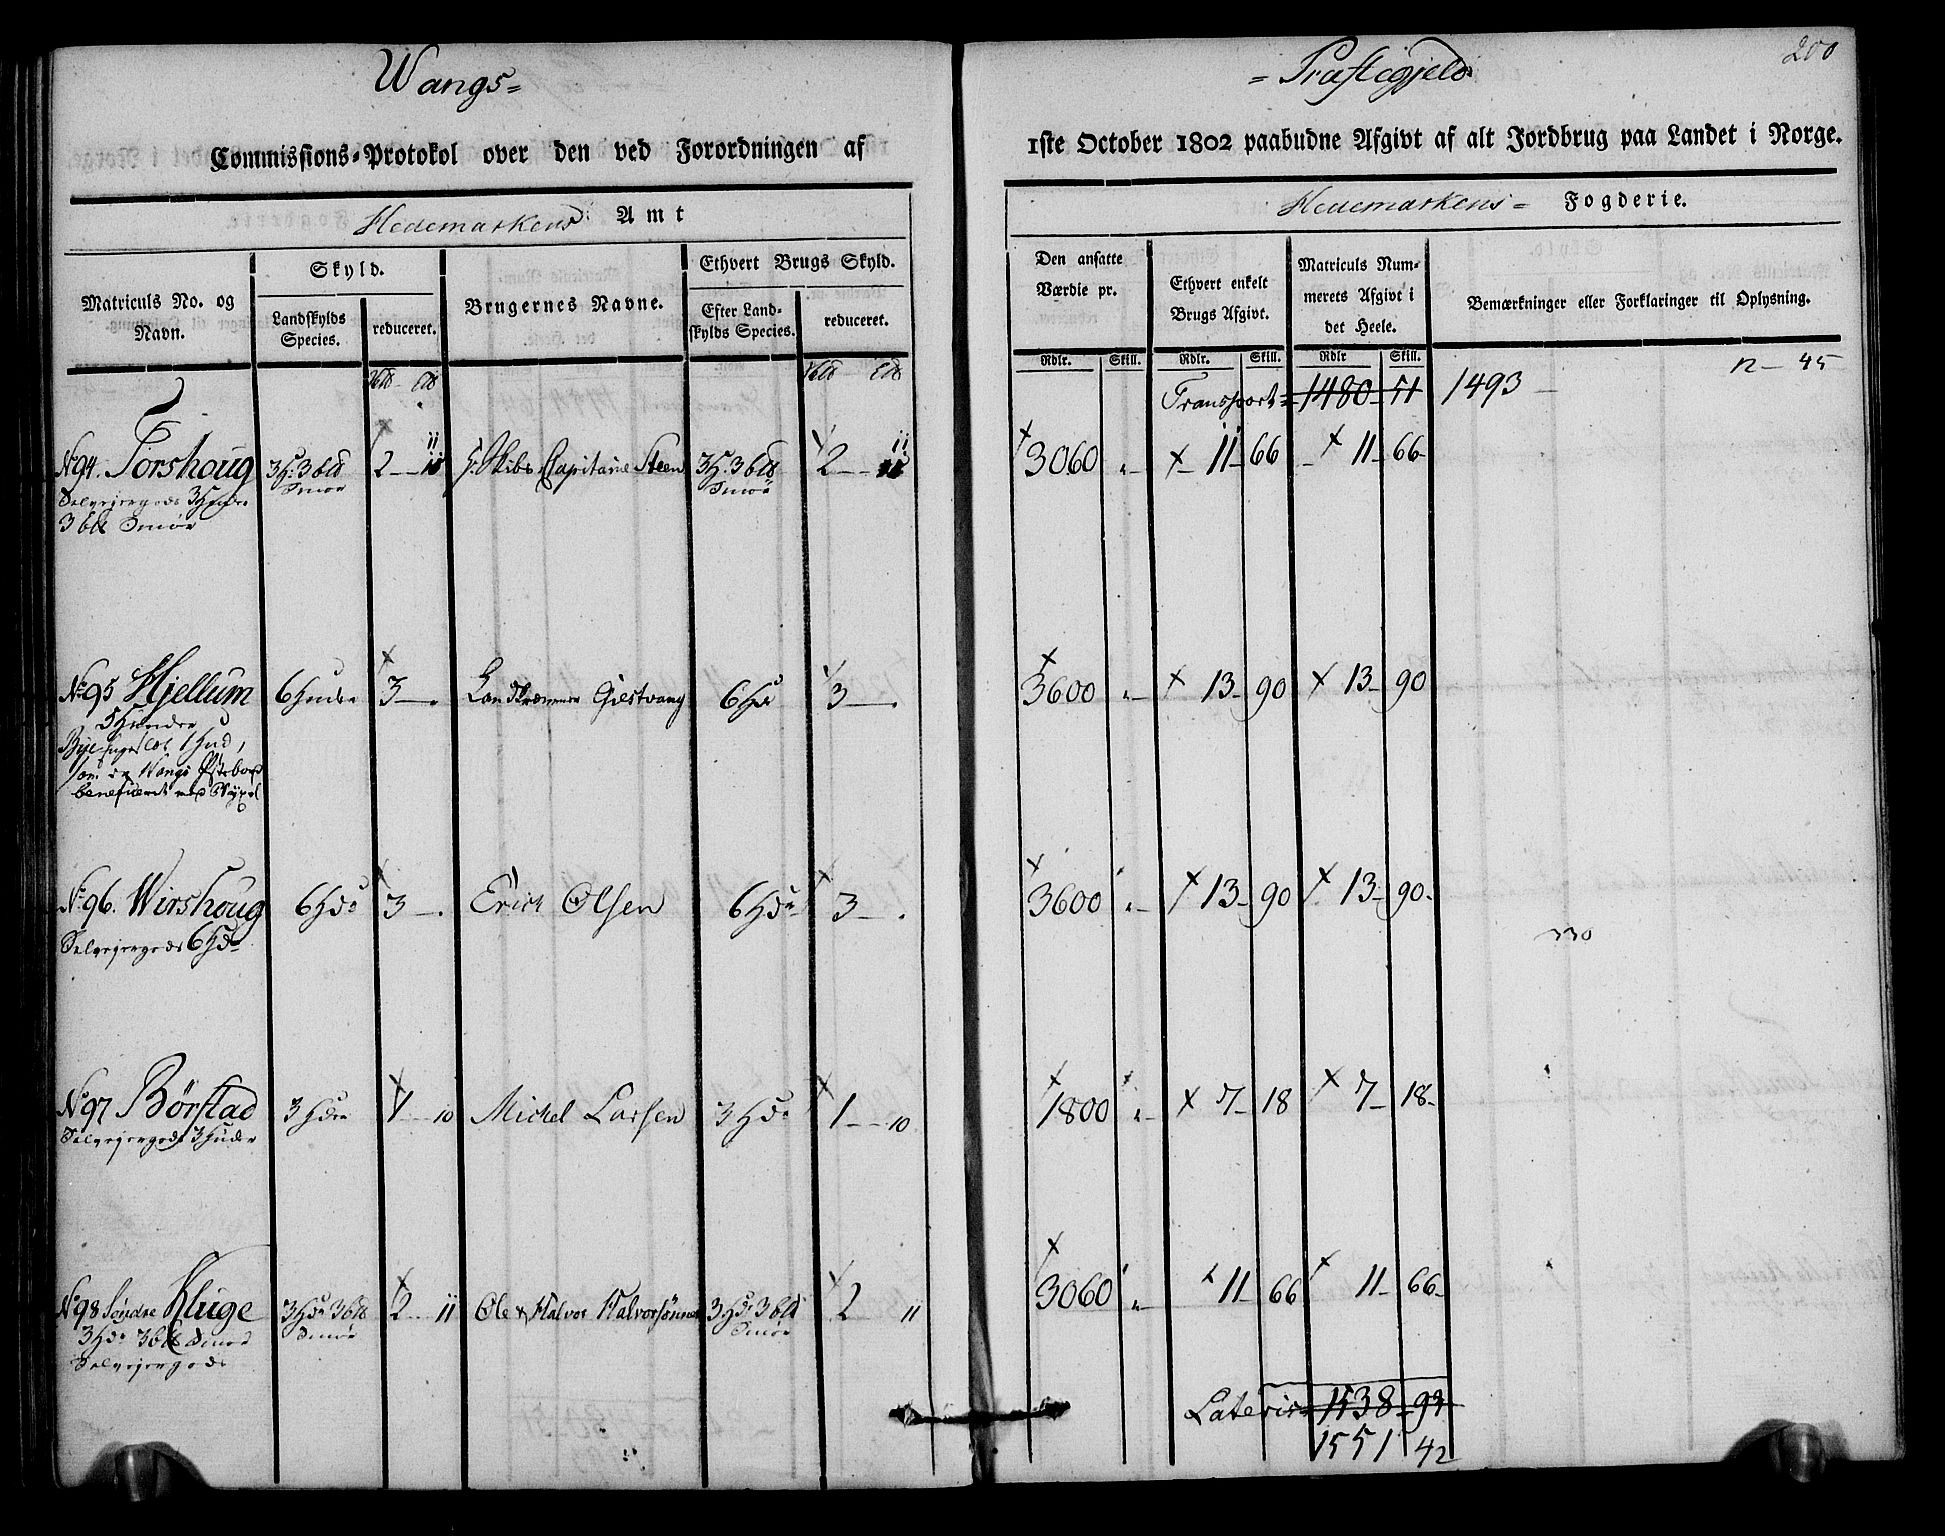 Wangs=
=Præstegjeld
200
Commissions=Protokol over den ved Forordningen af
1ste October 1802 paabudne Afgivt af alt Jordbrug paa Landet i Norge.
Hedemarkens Amt
Hedemarkens= Fogderie.
Matriculs No. og Navn.
Skyld.
Landskylds Species.
reduceret.
Brugernes Navne.
Ethvert Brugs Skyld.
Efter Landskylds Species.
reduceret.
Den ansatte Værdie pr.
Ethvert enkelt Brugs Afgivt.
Matriculs Nummerets Afgivt i det Heele.
Bemærkninger eller Forklaringer til Oplysning.
Rdlr. Skill. Rdlr. Skill. Rdlr Skill.
Transport= 1480 51 1493 — 12 — 45
No 94. Torshoug 3 H. 3 bld Smør 2 — 11 Hr. Skibs Capitaine Steen 3 H. 3 bld Smør 2 — 11 3060 „ 11 — 66 11 — 66
Selvejergods 3 Huder
3 bld Smør
No 95 Hjellum 6 Huder 3 — . Landkræmmer Giestvang 6 Hdr 3 — . 3600 „ 13 — 90 13 — 90
5 Hunder
1 Hud,
Wangs
beneficeret
No 96. Wirshoug 6 Hdr 3 — . Erich Olsen 6 Hdr 3 — . 3600 „ 13 — 90 13 — 90
Selvejergods 6 Hdr
330
No 97 Børstad 3 Hder 1 — 10 Michel Larsen 3 Hdr 1 — 10 1800 „ 7 — 18 7 — 18
Selvejergods 3 Huder
No 98 Søndre Kluge 3 Hdr 3 bld Smør 2 — 11 Ole & Halvor Halvorsønner 3 Hdr 3 bld Smør 2 11 3060 „ 11 — 66 11 — 66
3 Hdr 3 bld Smør
Selvejergods
Lateris= 1538 — 93
1551 42